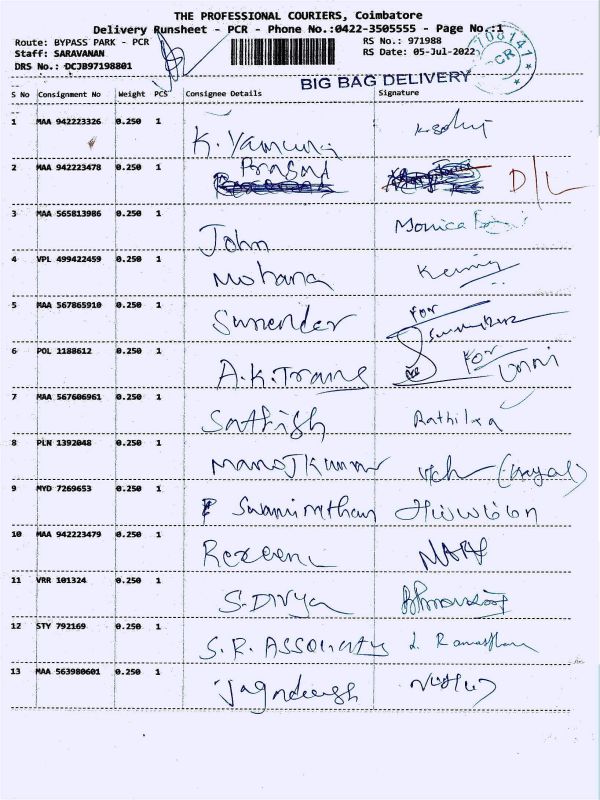 THE PROFESSIONAL COURIERS, Coimbatore
Delivery Runsheet - PCR - Phone No.:0422-3505555 - Page No.:1
Route: BYPASS PARK - PCR
RS No.: 971988
Staff: SARAVANAN
RS Date: 05-Jul-2022
DRS No.: DCJB97198801
BIG BAG DELIVERY
PCR
S No Consignment No Weight PCS Consignee Details Signature
1 MAA 942223326 0.250 1 K. Yamuna
2 MAA 942223478 0.250 1 Prasad D/L
3 MAA 565813986 0.250 1 John Monica
4 VPL 499422459 0.250 1 Mohana
5 MAA 567865910 0.250 1 Surrender FOR
6 POL 1188612 0.250 1 A.K.Trans FOR Unni
7 MAA 567606961 0.250 1 Sathish Rathika
8 PLN 1392048 0.250 1 Manoj Kumar
9 MYD 7269653 0.250 1 Swaminathan
10 MAA 942223479 0.250 1
11 VRR 101324 0.250 1 S.Divya
12 STY 792169 0.250 1 S.R. ASSOCIATES
13 MAA 563980601 0.250 1